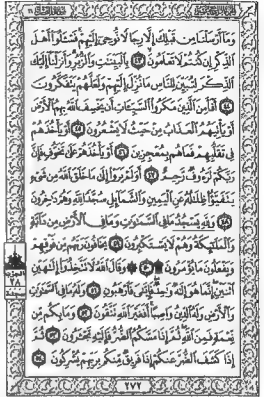 وَمَا أَرْسَلْنَا مِن قَبْلِكَ إِلَّا رِجَالًا نُّوحِي إِلَيْهِمْ فَسْـَٔلُوا أَهْلَ
الذِّكْرِ إِن كُنتُمْ لَا تَعْلَمُونَ ٤٣ بِالْبَيِّنَٰتِ وَالزُّبُرِ وَأَنزَلْنَا إِلَيْكَ
الذِّكْرَ لِتُبَيِّنَ لِلنَّاسِ مَا نُزِّلَ إِلَيْهِمْ وَلَعَلَّهُمْ يَتَفَكَّرُونَ
٤٤ أَفَأَمِنَ الَّذِينَ مَكَرُوا السَّيِّـَٔاتِ أَن يَخْسِفَ اللَّهُ بِهِمُ الْأَرْضَ
أَوْ يَأْتِيَهُمُ الْعَذَابُ مِنْ حَيْثُ لَا يَشْعُرُونَ ٤٥ أَوْ يَأْخُذَهُمْ
فِي تَقَلُّبِهِمْ فَمَا هُم بِمُعْجِزِينَ ٤٦ أَوْ يَأْخُذَهُمْ عَلَىٰ تَخَوُّفٍ فَإِنَّ
رَبَّكُمْ لَرَءُوفٌ رَّحِيمٌ ٤٧ أَوَلَمْ يَرَوْا إِلَىٰ مَا خَلَقَ اللَّهُ مِن شَيْءٍ
يَتَفَيَّؤُا ظِلَٰلُهُ عَنِ الْيَمِينِ وَالشَّمَائِلِ سُجَّدًا لِّلَّهِ وَهُمْ دَٰخِرُونَ
٤٨ وَلِلَّهِ يَسْجُدُ مَا فِي السَّمَٰوَٰتِ وَمَا فِي الْأَرْضِ مِن دَابَّةٍ
وَالْمَلَٰئِكَةُ وَهُمْ لَا يَسْتَكْبِرُونَ ٤٩ يَخَافُونَ رَبَّهُم مِّن فَوْقِهِمْ
وَيَفْعَلُونَ مَا يُؤْمَرُونَ ٥٠ وَقَالَ اللَّهُ لَا تَتَّخِذُوا إِلَٰهَيْنِ
اثْنَيْنِ إِنَّمَا هُوَ إِلَٰهٌ وَٰحِدٌ فَإِيَّٰيَ فَارْهَبُونِ ٥١ وَلَهُ مَا فِي السَّمَٰوَٰتِ
وَالْأَرْضِ وَلَهُ الدِّينُ وَاصِبًا أَفَغَيْرَ اللَّهِ تَتَّقُونَ ٥٢ وَمَا بِكُم مِّن
نِّعْمَةٍ فَمِنَ اللَّهِ ثُمَّ إِذَا مَسَّكُمُ الضُّرُّ فَإِلَيْهِ تَجْـَٔرُونَ ٥٣ ثُمَّ
إِذَا كَشَفَ الضُّرَّ عَنكُمْ إِذَا فَرِيقٌ مِّنكُم بِرَبِّهِمْ يُشْرِكُونَ ٥٤
الحزب
٢٨
سجدة
٢٧٢